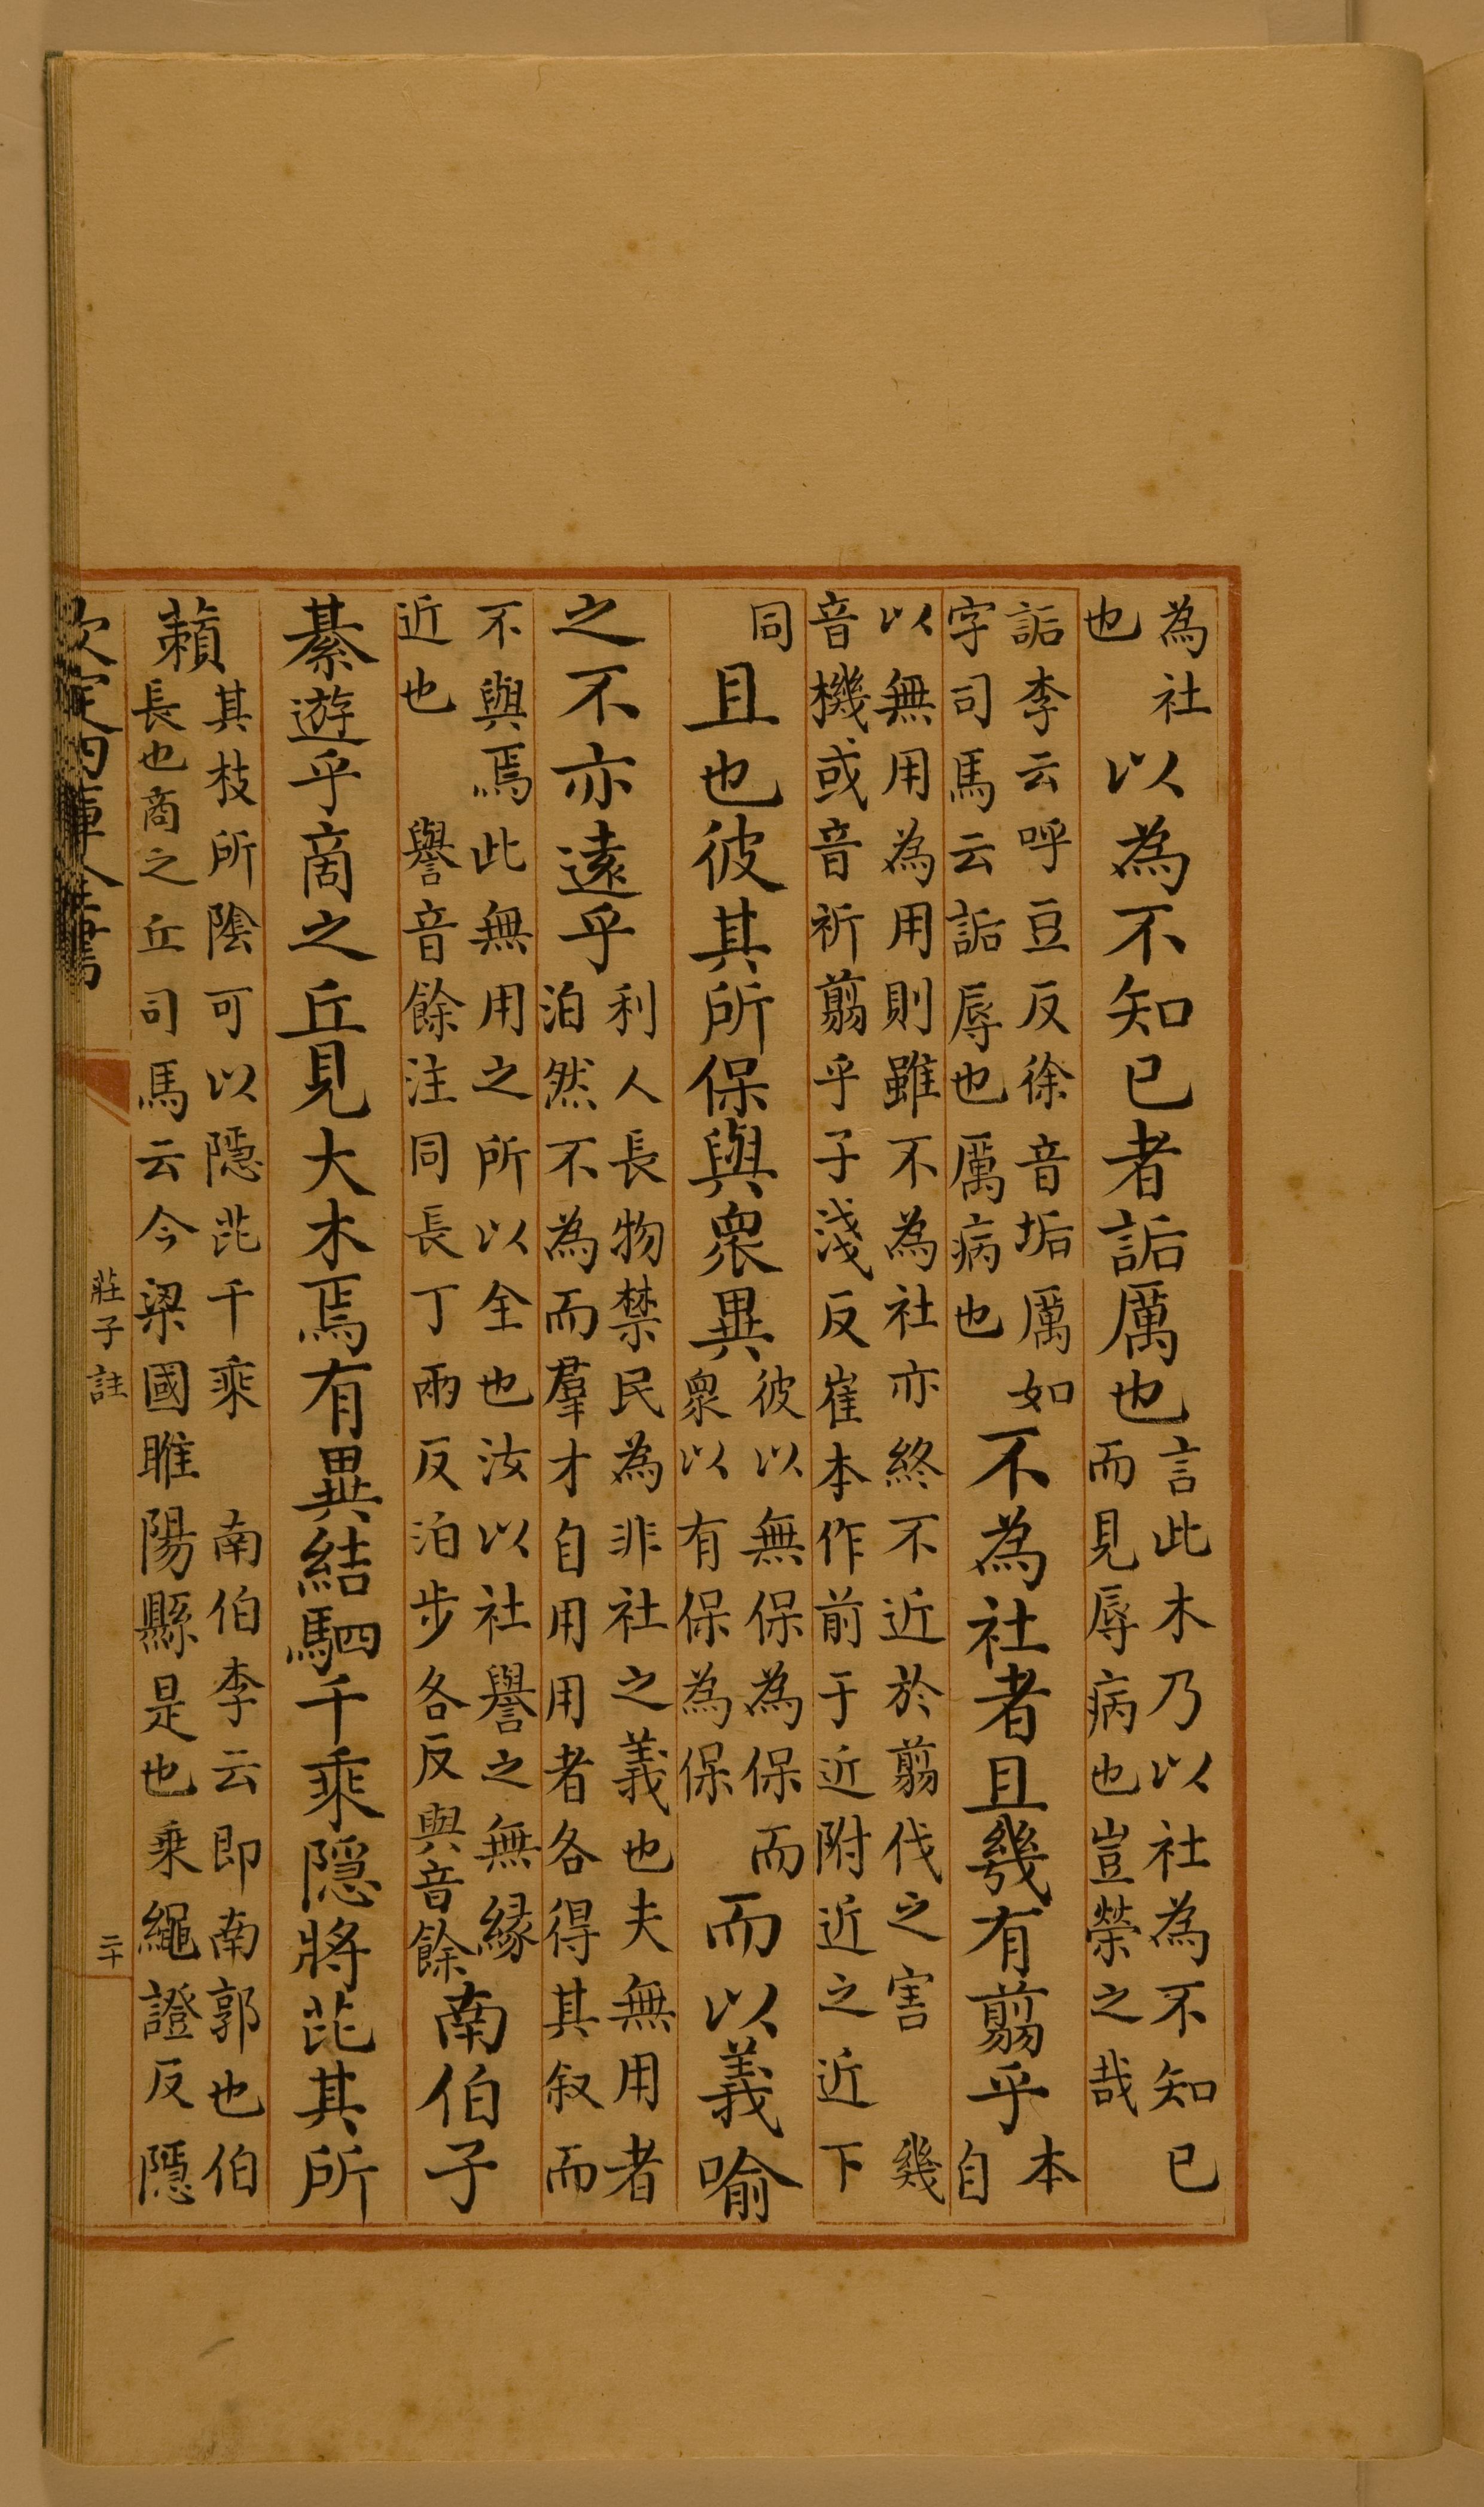 為社也以為不知已者詬厲也言此木乃以社為不知已而見辱病也豈榮之哉
詬李云呼豆反徐音垢厲如字司馬云詬辱也厲病也不為社者且幾有翦乎本自
以無用為用則雖不為社亦終不近於翦伐之害幾音機或音祈翦乎子淺反崔本作前于近附近之近下
同且也彼其所保與衆異彼以無保為保而衆以有保為保而以義喻
之不亦遠乎利人長物禁民為非社之義也夫無用者泊然不為而羣才自用用者各得其叙而
不與焉此無用之所以全也汝以社譽之無緣近也譽音餘注同長丁兩反泊步各反與音餘南伯子
綦遊乎商之丘見大木焉有異結駟千乘隱將芘其所
藾其枝所陰可以隱芘千乘南伯李云即南郭也伯長也商之丘司馬云今梁國睢陽縣是也乘繩證反隱
欽定四庫全書
莊子註
二十